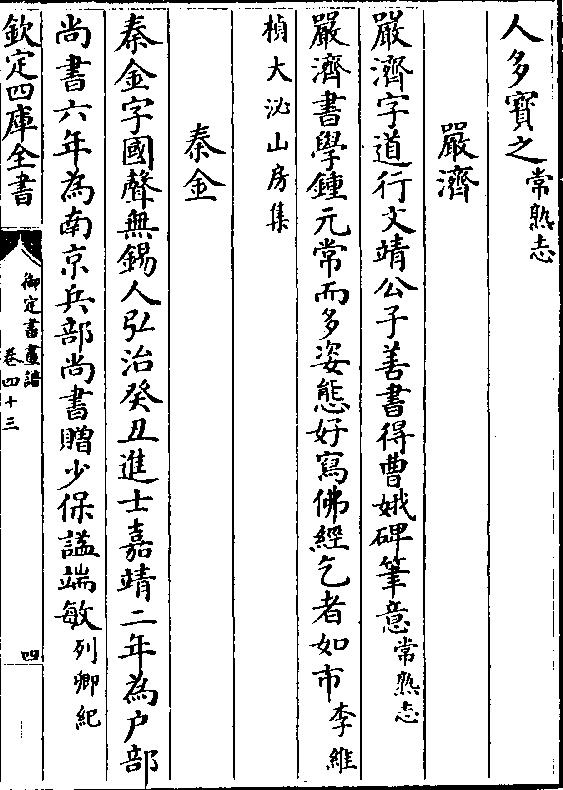 人多寳之常熟志
嚴濟
嚴濟字道行文靖公子善書得曹娥碑筆意常熟志
嚴濟書學鍾元常而多姿態好寫佛經乞者如市李維
楨大泌山房集
秦金
秦金字國聲無錫人弘治癸丑進士嘉靖二年為户部
尚書六年為南京兵部尚書贈少保諡端敏列卿紀
欽定四庫全書
御定書畫譜
卷四十三
四